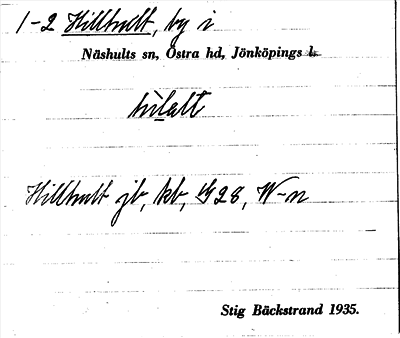 1-2 Hillhult, by i
Näshults sn, Östra hd, Jönköpings l.
Hillhult jb, kb, G 28, W-n
Stig Bäckstrand 1935.